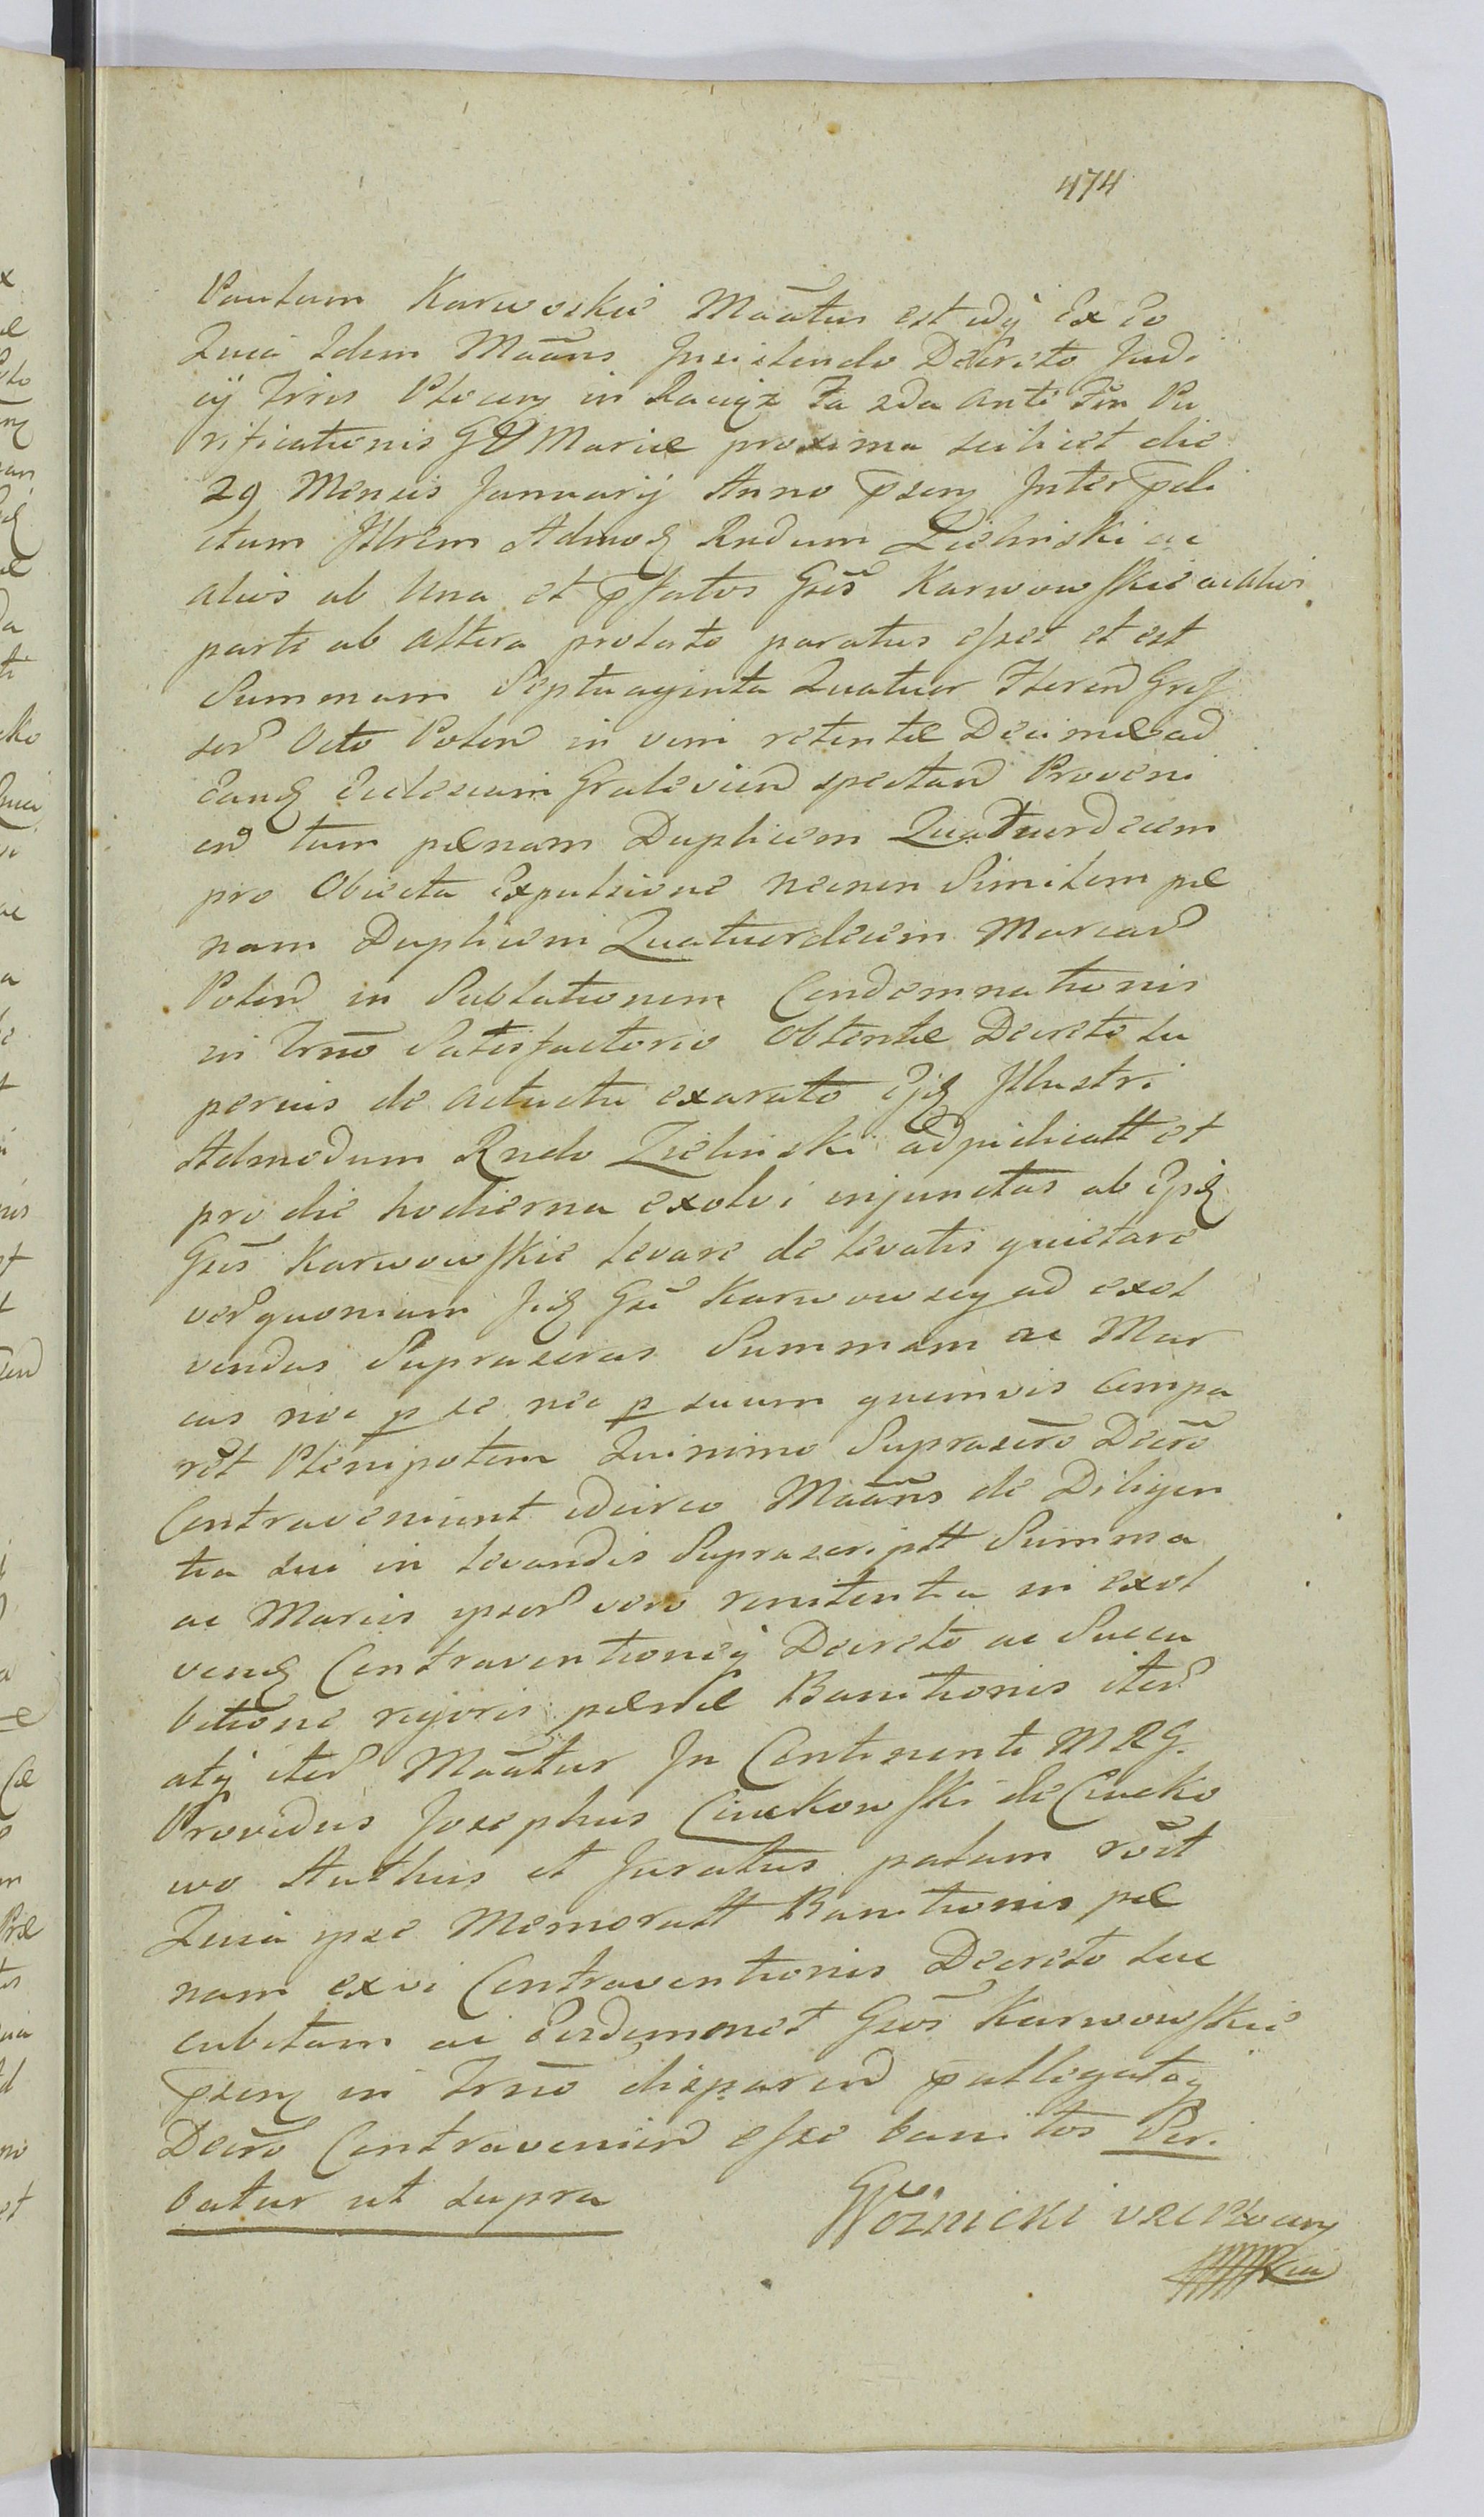 474
Paulum Karwoskie Maãtus est idq Ex Eo
Quia Idem Maãns Insistendo Decreto Judi
cij Trris Plocen in Raciąż Fa 2da ante Ftm Pu
rificationis GV Mariæ proxima scilicet die
29 Mensis Januarij Anno p̃sen Inter p̃di
ctum Illrem Admoq Rndum Zielinski ac
alios ab Una et p̃fatos Gsõs Karwowskie ac alios
parte ab altera prolato paratus esset et est
Summam Septuaginta Quatuor Floren Gros
sor Octo Polon in vim retentæ Decimæ ad
Eanq Eclesiam Gralevien spectan Proveni
en tum pænam Duplicem Quatuordecim
pro Obiecta Expulsione necnon Similem pæ
nam Duplicem Quatuordecim Marcar
Polon in Sublationem Condemnationis
in Trno Satisfactorio obtentæ Decreto su
perius de actu exarato Ejq Illustri
Admodum Rndo Zielinski adjudicatt et
pro die hodierna exolvi injunctas ab Ipq
Gsis Karwowskie levare de levatis quietare
ver quoniam Jiq Gsi Karwowscy ad exol
vendas Suprascras Summam ac Mar
cas nec p se nec p suum quemvis Compa
rẽt Plenipotem Quinimo Suprascrõ Decrõ
Contraveniunt idcirco Maãns de Diligen
tia sui in levandis Suprascriptt Summa
ac Marcis ipsor vero renitentia in exol
venq Contraventioneq Decreto ac Succu
bitione rigoris pænæ Banitionis iter
atq iter Maãtur In Continenti MRG.
Providus Josephus Ciuckowski de Ciucko
wo Authus et Juratus palam rõit
Quia ipse Memoratt Banitionis pæ
nam ex vi Contraventionis Decreto suc
cubitam ac Eosdem Gsos Karwowskie
p̃sen in Trno disparen p̃allegatoq
Decrõ Contravenien esse banitos Peri
batur ut supra
Woznicki VRC Plocen